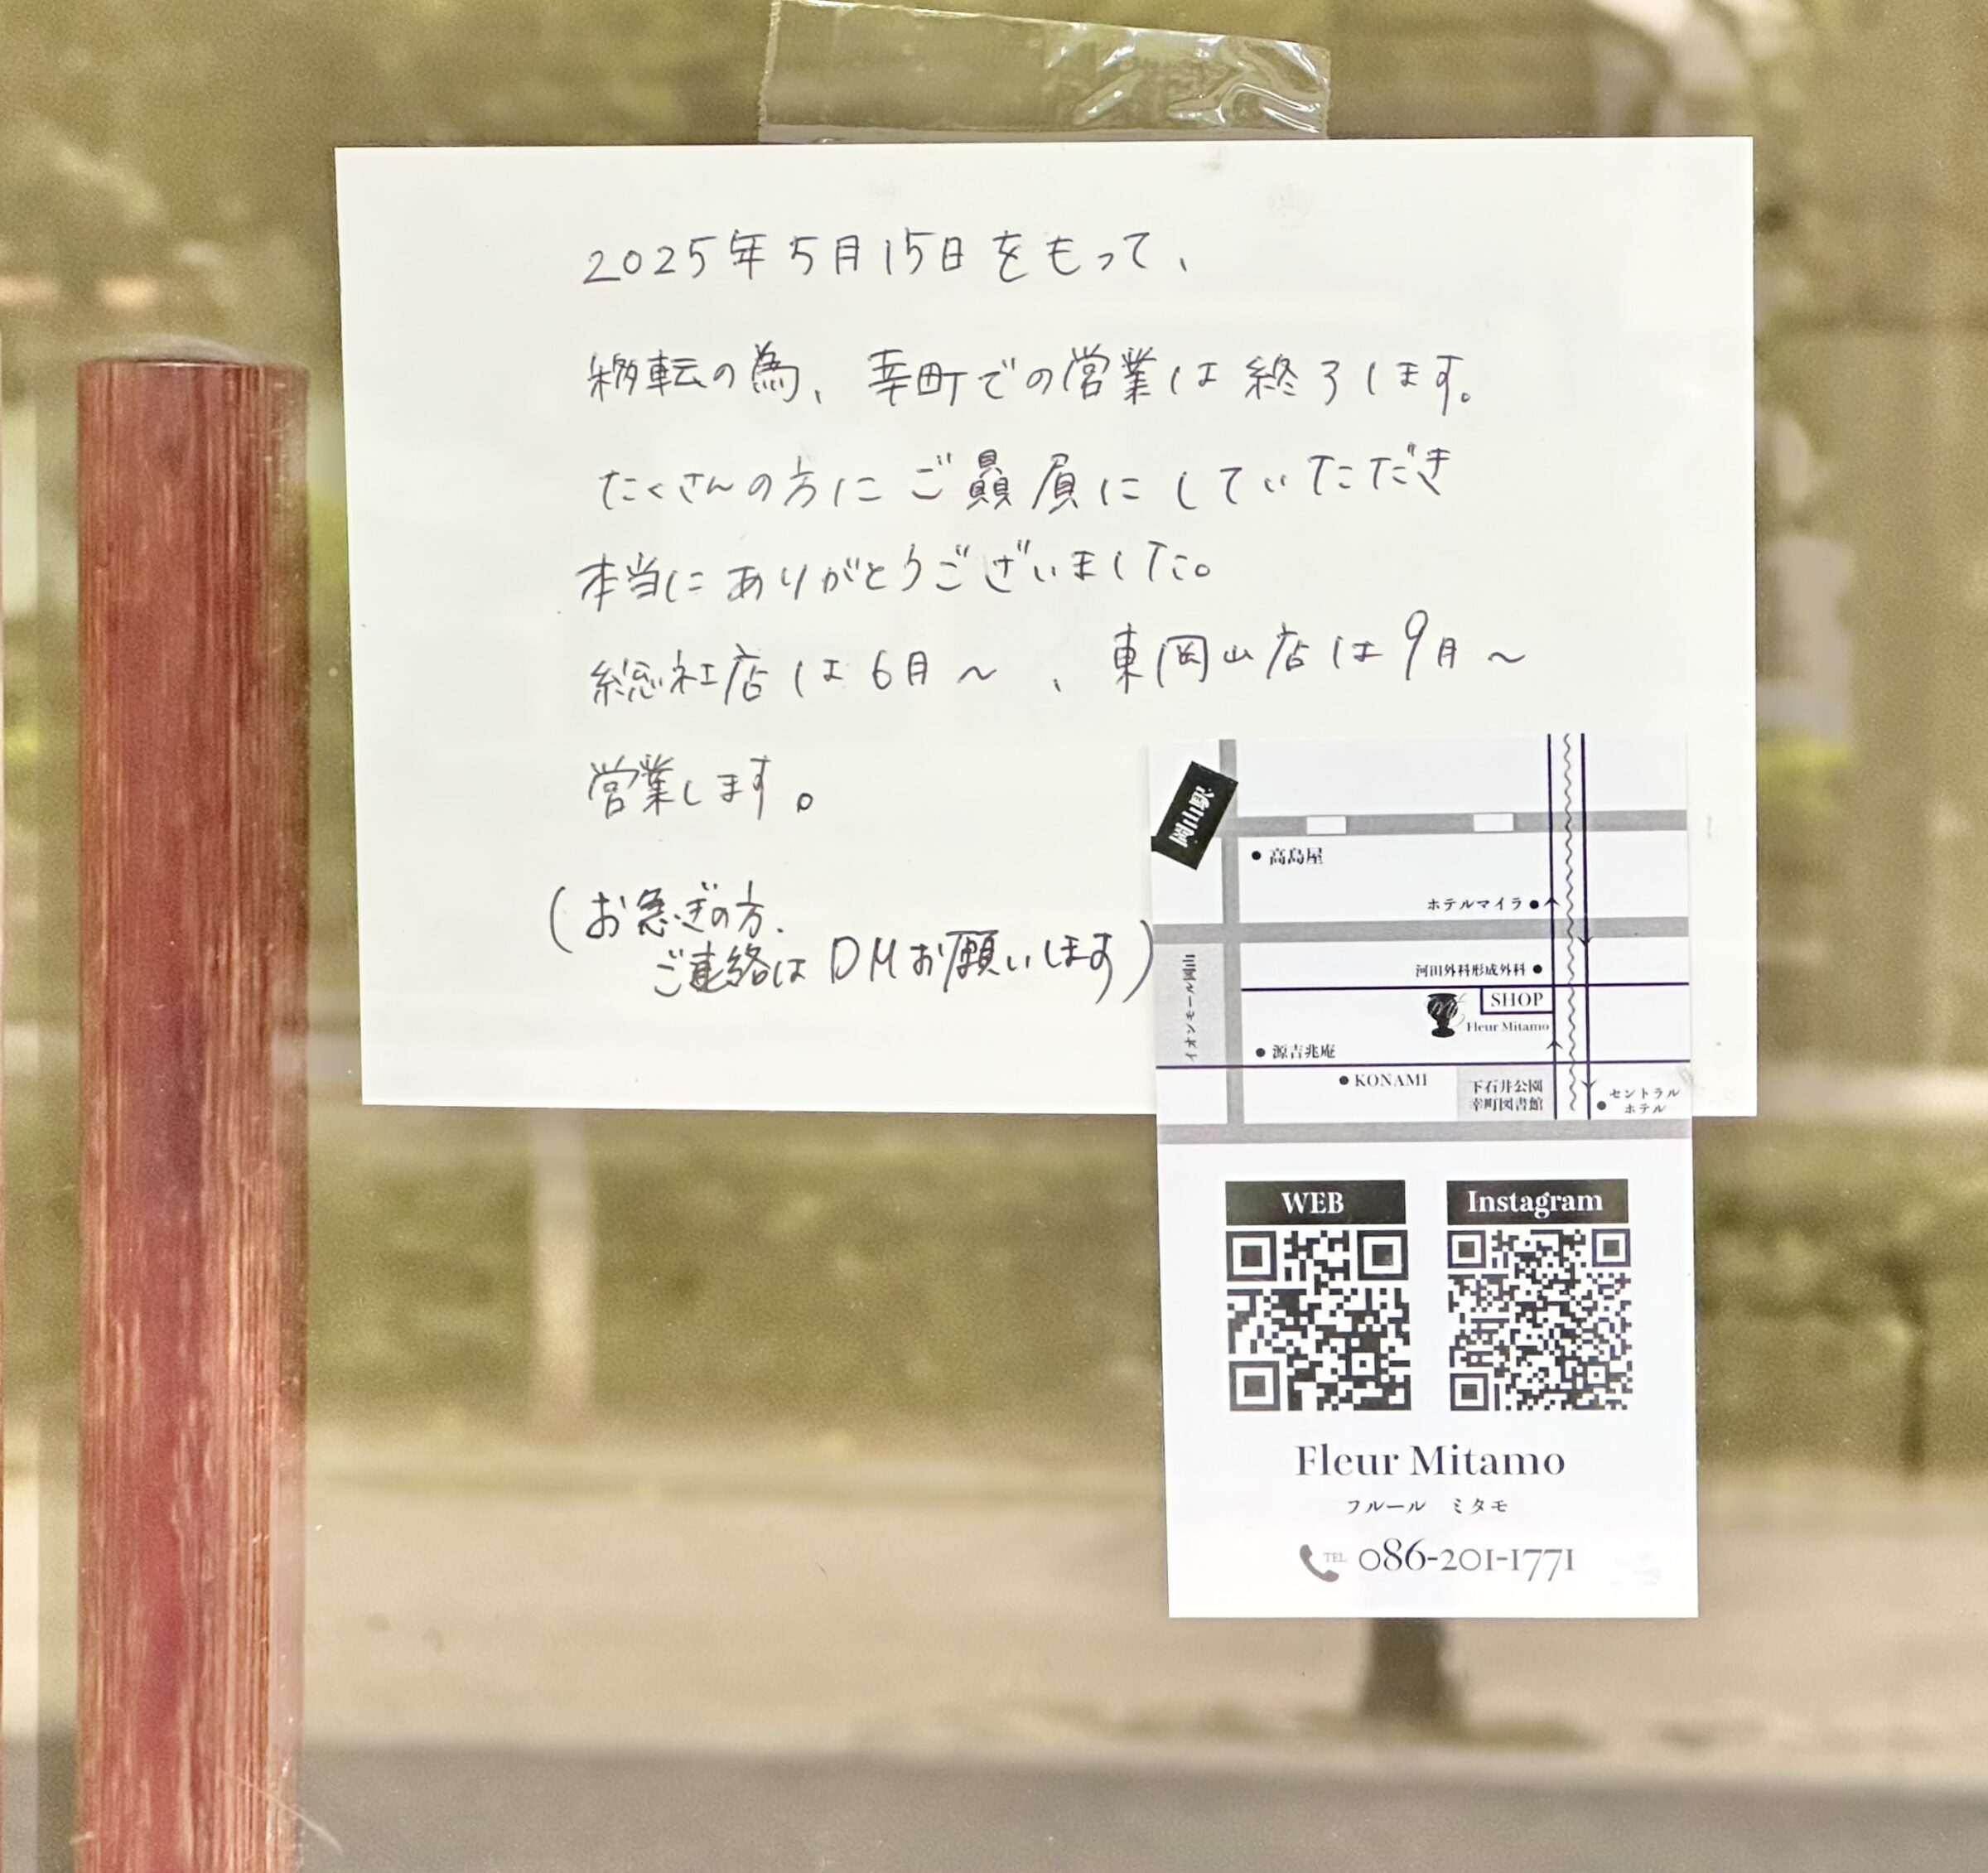 2025年5月15日をもって、
移転の為、幸町での営業は終了します。
たくさんの方にご贔屓にしていただき
本当にありがとうございました。
総社店は6月〜、東岡山店は9月〜
営業します。
(お急ぎの方、
ご連絡はDMお願いします)
岡山駅
高島屋
ホテルマイラ
河田外科形成外科
SHOP
Fleur Mitamo
イオンモール岡山
源吉兆庵
KONAMI
下石井公園
幸町図書館
セントラル
ホテル
WEB
Instagram
Fleur Mitamo
フルール ミタモ
TEL 086-201-1771